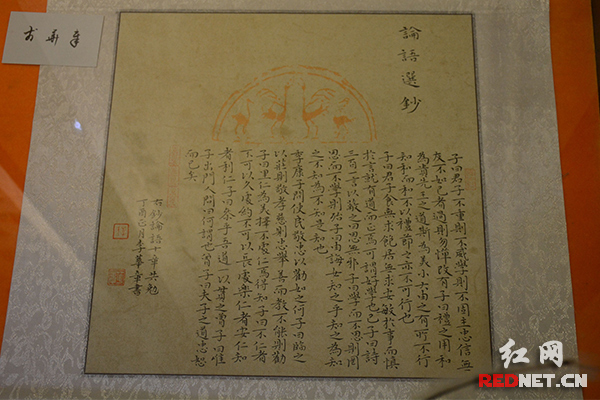 論語選鈔
子曰君子不重則不威學則不固主忠信無
友不如己者過則勿憚改有子曰禮之用和
為貴先王之道斯為美小大由之有所不行
知和而和不以禮節之亦不可行也
子曰君子食無求飽居無求安敏於事而慎
於言就有道而正焉可謂好學也已子曰詩
三百一言以蔽之曰思無邪子曰學而不思則罔
思而不學則殆子曰由誨女知之乎知之為知
之不知為不知是知也
季康子問使民敬忠以勸如之何子曰臨之
以莊則敬孝慈則忠舉善而教不能則勸
子曰里仁為美擇不處仁焉得知子曰不仁者
不可以久處約不可以長處樂仁者安仁知
者利仁子曰參乎吾道一以貫之曾子曰唯
子出門人問曰何謂也曾子曰夫子之道忠恕
而已矣
右鈔論語十章共勉
丁酉正月李華章書
红网
REDNET.CN